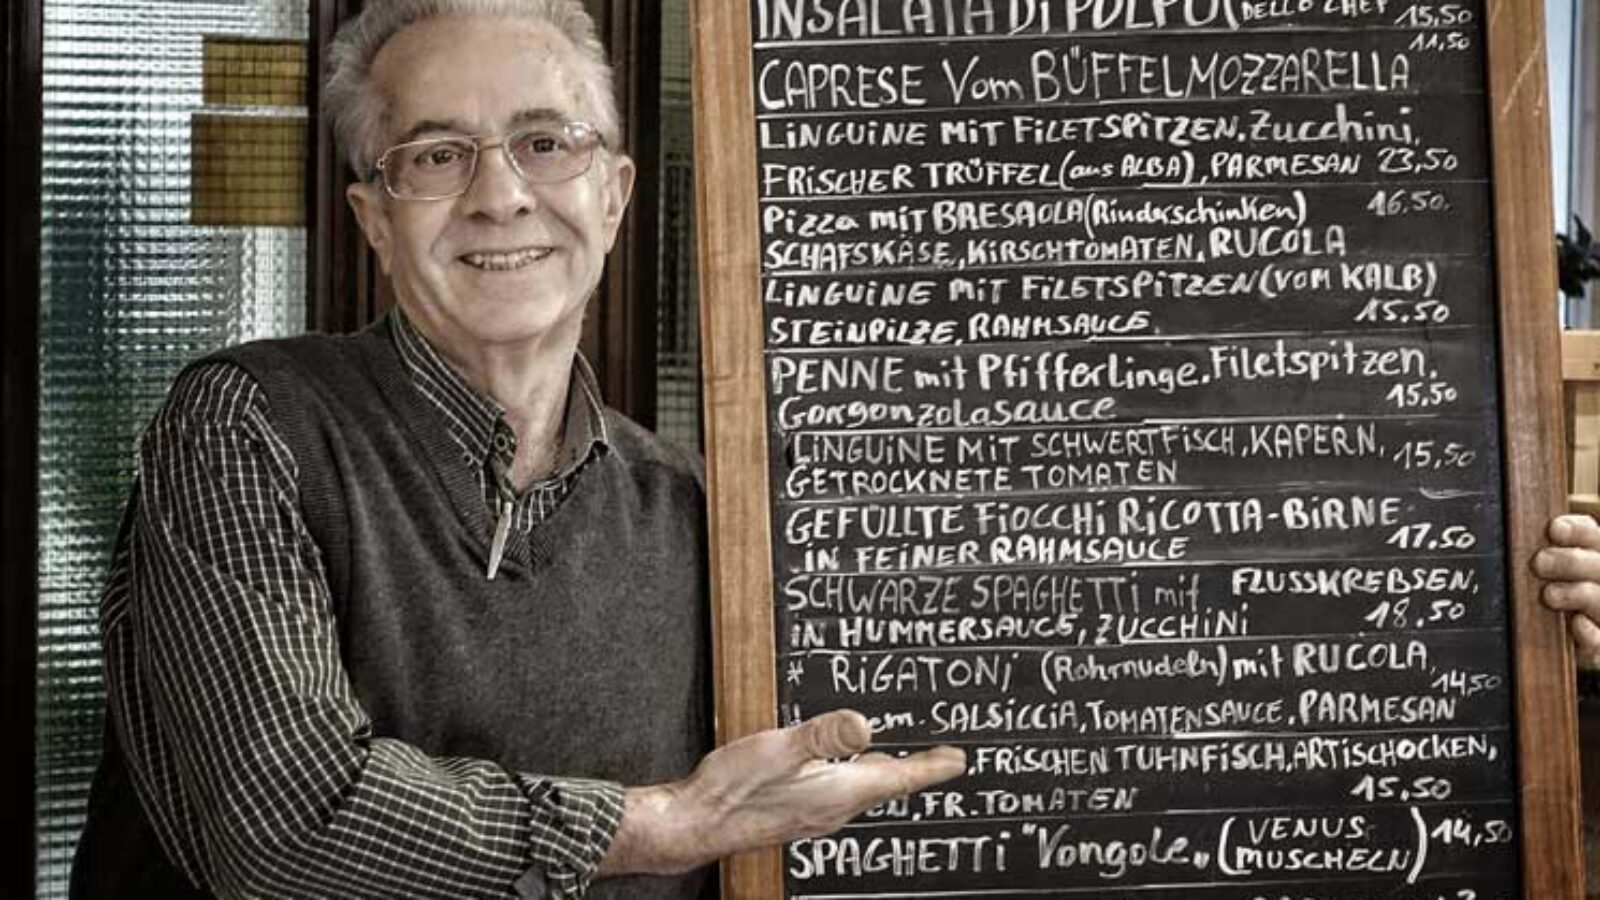 INSALATA Di POLPO (DELLO CHEF 15,50
11,50
CAPRESE Vom BÜFFELMOZZARELLA
LiNGUiNE MiT FiLETSPiTZEN, Zucchini,
FRiSCHER TRÜFFEL (aus ALBA), PARMESAN 23,50
Pizza MiT BRESAOLA (Rinderschinken) 16,50.
SCHAFSKÄSE, KiRSCHTOMATEN, RUCOLA
LiNGUiNE MiT FiLETSPiTZEN (VOM KALB)
15.50
STEiNPiLZE, RAHMSAUCE
PENNE mit Pfifferlinge, Filetspitzen,
15,50
Gorgonzolasauce
LiNGUiNE MiT SCHWERTFiSCH, KAPERN, 15,50
GETROCKNETE TOMATEN
GEFÜLLTE FiOCCHi RiCOTTA-BiRNE
17.50
iN FEiNER RAHMSAUCE
SCHWARZE SPAGHETTi mit FLUSSKREBSEN,
18,50
iN HUMMERSAUCE, ZUCCHiNi
* RiGATONi (Rohrnudeln) mit RUCOLA,
14,50
SALSiCCiA, TOMATENSAUCE, PARMESAN
, FRiSCHEN TUHNFiSCH, ARTiSCHOCKEN,
15,50
, FR. TOMATEN
SPAGHETTi "Vongole" (VENUS MUSCHELN) 14,50